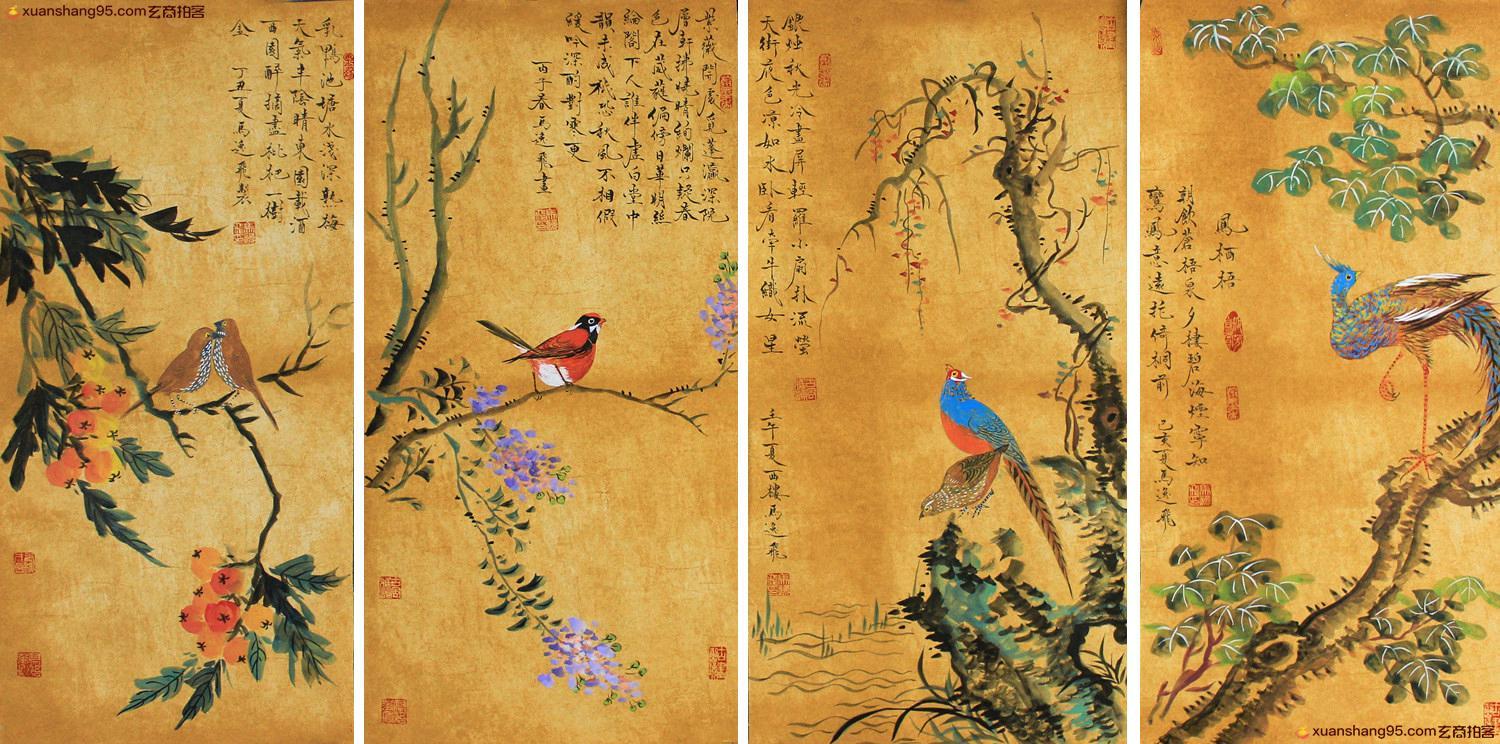 xuanshang95.com玄商拍客
乳鴨池塘水淺深熟梅
天氣半陰晴東園載酒
西園醉摘盡枇杷一樹
金 丁丑夏馬逸飛製
紫薇開處覓蓬瀛深院
層軒弄曉晴絢爛只疑春
色在葳蕤偏傍日華明絲
綸閣下人誰伴虛白堂中
韻未成祇恐秋風不相假
緩吟深酌對寒更
丙子春馬逸飛畫
銀烛秋光冷畫屏輕羅小扇扑流螢
天街夜色涼如水臥看牽牛織女星
壬午夏西樓馬逸飛
鳳栖梧
朝飲蒼梧泉夕棲碧海煙寧知
鸞鳳意遠托倚桐前 己亥夏馬逸飛
xuanshang95.com玄商拍客